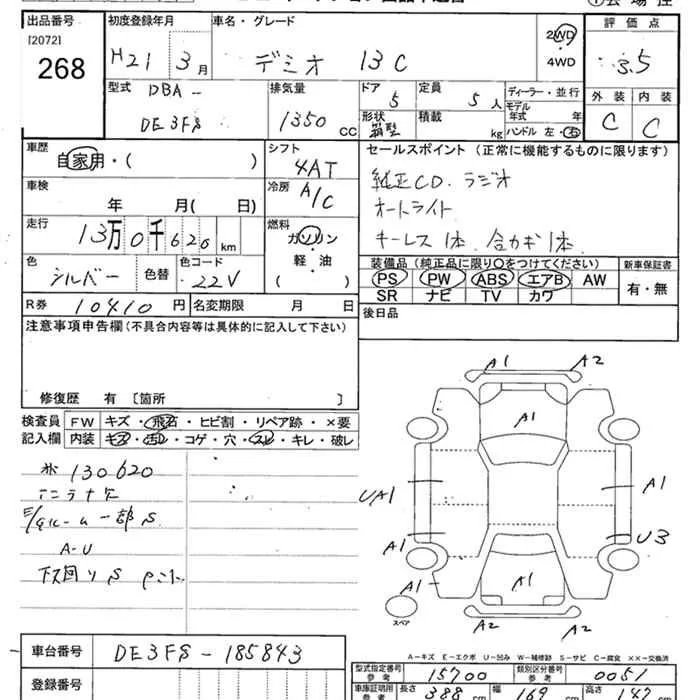 出品番号 初度登録年月 車名・グレード 2WD 評価点
[2072] H21 3月 デミオ 13C 4WD 3.5
268
型式 排気量 ドア 定員 ディーラー・並行 外装 内装
DBA- 5 5人 モデル年式 年
DE3FS 1350cc 形状 箱型 積載 kg ハンドル 左・右 C C
車歴 シフト セールスポイント(正常に機能するものに限ります)
自家用・( ) 4AT 純正CD.ラジオ
車検 冷房 オートライト
年 月( 日) A/C キーレス1本 合カギ1本
走行 燃料
13万0千620km ガソリン・軽油
装備品(純正品に限り○をつけてください) 新車保証書
色 色替 色コード PS PW ABS エアB AW 有・無
シルバー 22V SR ナビ TV カワ
R券 10410円 名変期限 月 日 後日品
注意事項申告欄(不具合内容等は具体的に記入して下さい)
修復歴 有 〔箇所 〕
検査員 FW キズ・飛石・ヒビ割・リペア跡・×要
記入欄 内装 キズ・汚レ・コゲ・穴・スレ・キレ・破レ
130620
一部S
A-U
下回りS
A1 A2
A1
UA1 A1
A1 U3
A1 A1
スペア A2 A2
A-キズ E-エクボ U-凹み W-補修跡 S-サビ C-腐食 ××-交換済
車台番号 DE3FS-185843
登録番号
型式指定番号 参考 15700 類別区分番号 参考 0051
車庫証明用 参考 長さ 388 幅 169 高さ 147